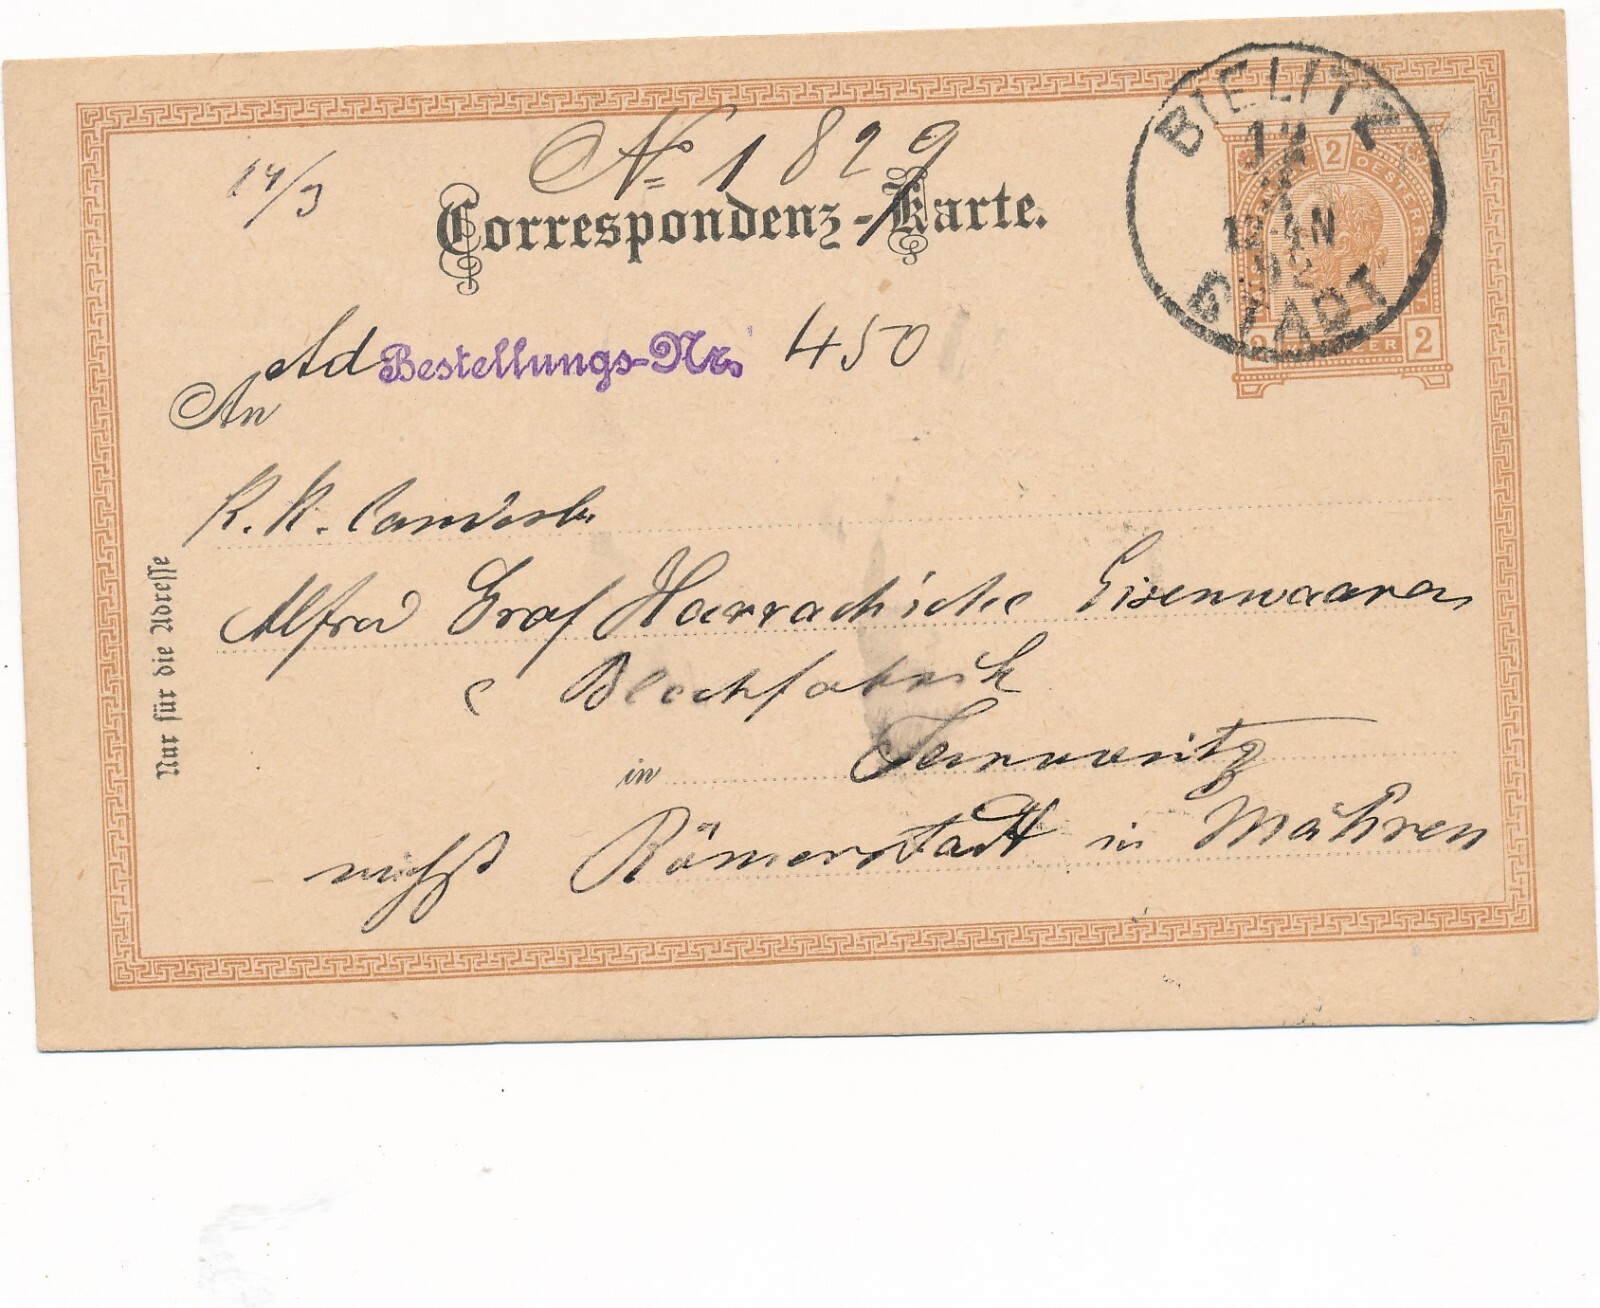 BIELITZ
STADT
2 OESTERR
2 2
14/3
No 1829
Correspondenz-Karte.
Ad Bestellungs-Nr. 450
An
K. K. landesb.
Alfred Graf Harrach'sche Eisenwaaren
& Blechfabrik
in Janowitz
nächst Römerstadt in Mähren
Nur für die Adresse